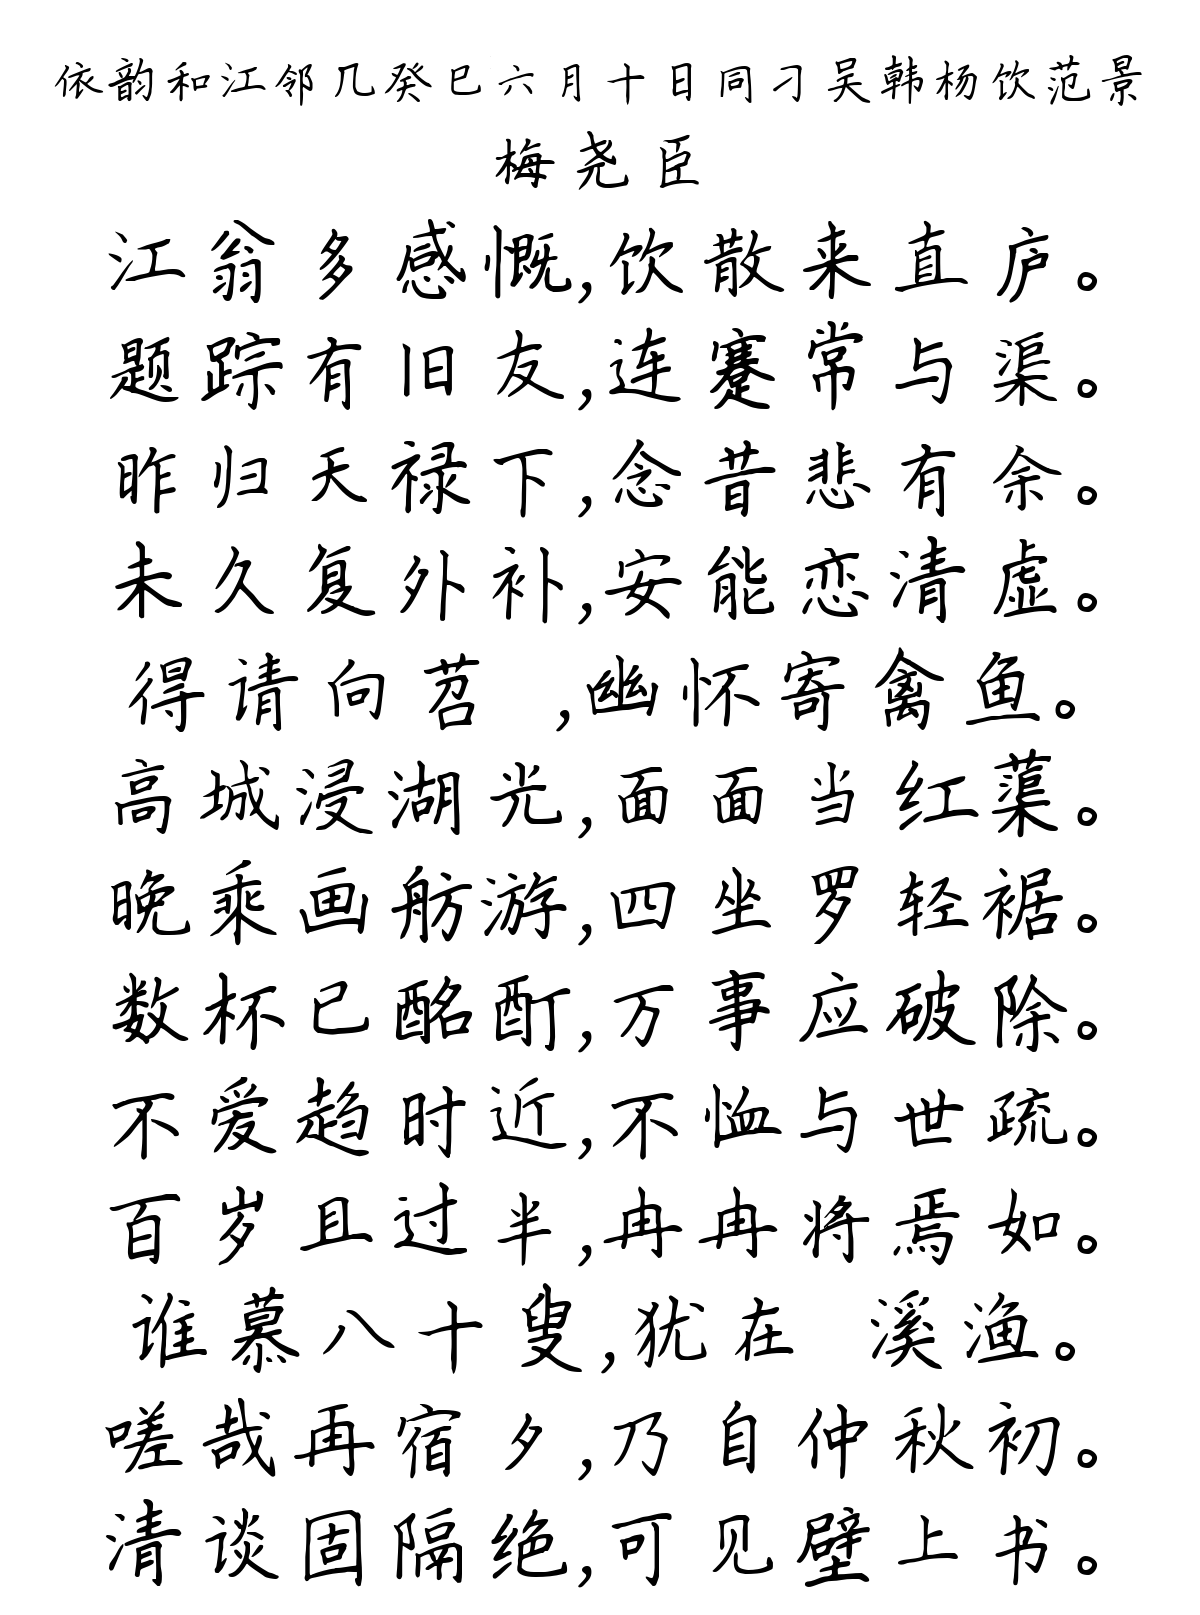 依韵和江邻几癸巳六月十日同刁吴韩杨饮范景
梅尧臣
江翁多感慨,饮散来直庐。
题踪有旧友,连蹇常与渠。
昨归天禄下,念昔悲有余。
未久复外补,安能恋清虚。
得请向苕 ,幽怀寄禽鱼。
高城浸湖光,面面当红蕖。
晚乘画舫游,四坐罗轻裾。
数杯已酩酊,万事应破除。
不爱趋时近,不恤与世疏。
百岁且过半,冉冉将焉如。
谁慕八十叟,犹在 溪渔。
嗟哉再宿夕,乃自仲秋初。
清谈固隔绝,可见壁上书。